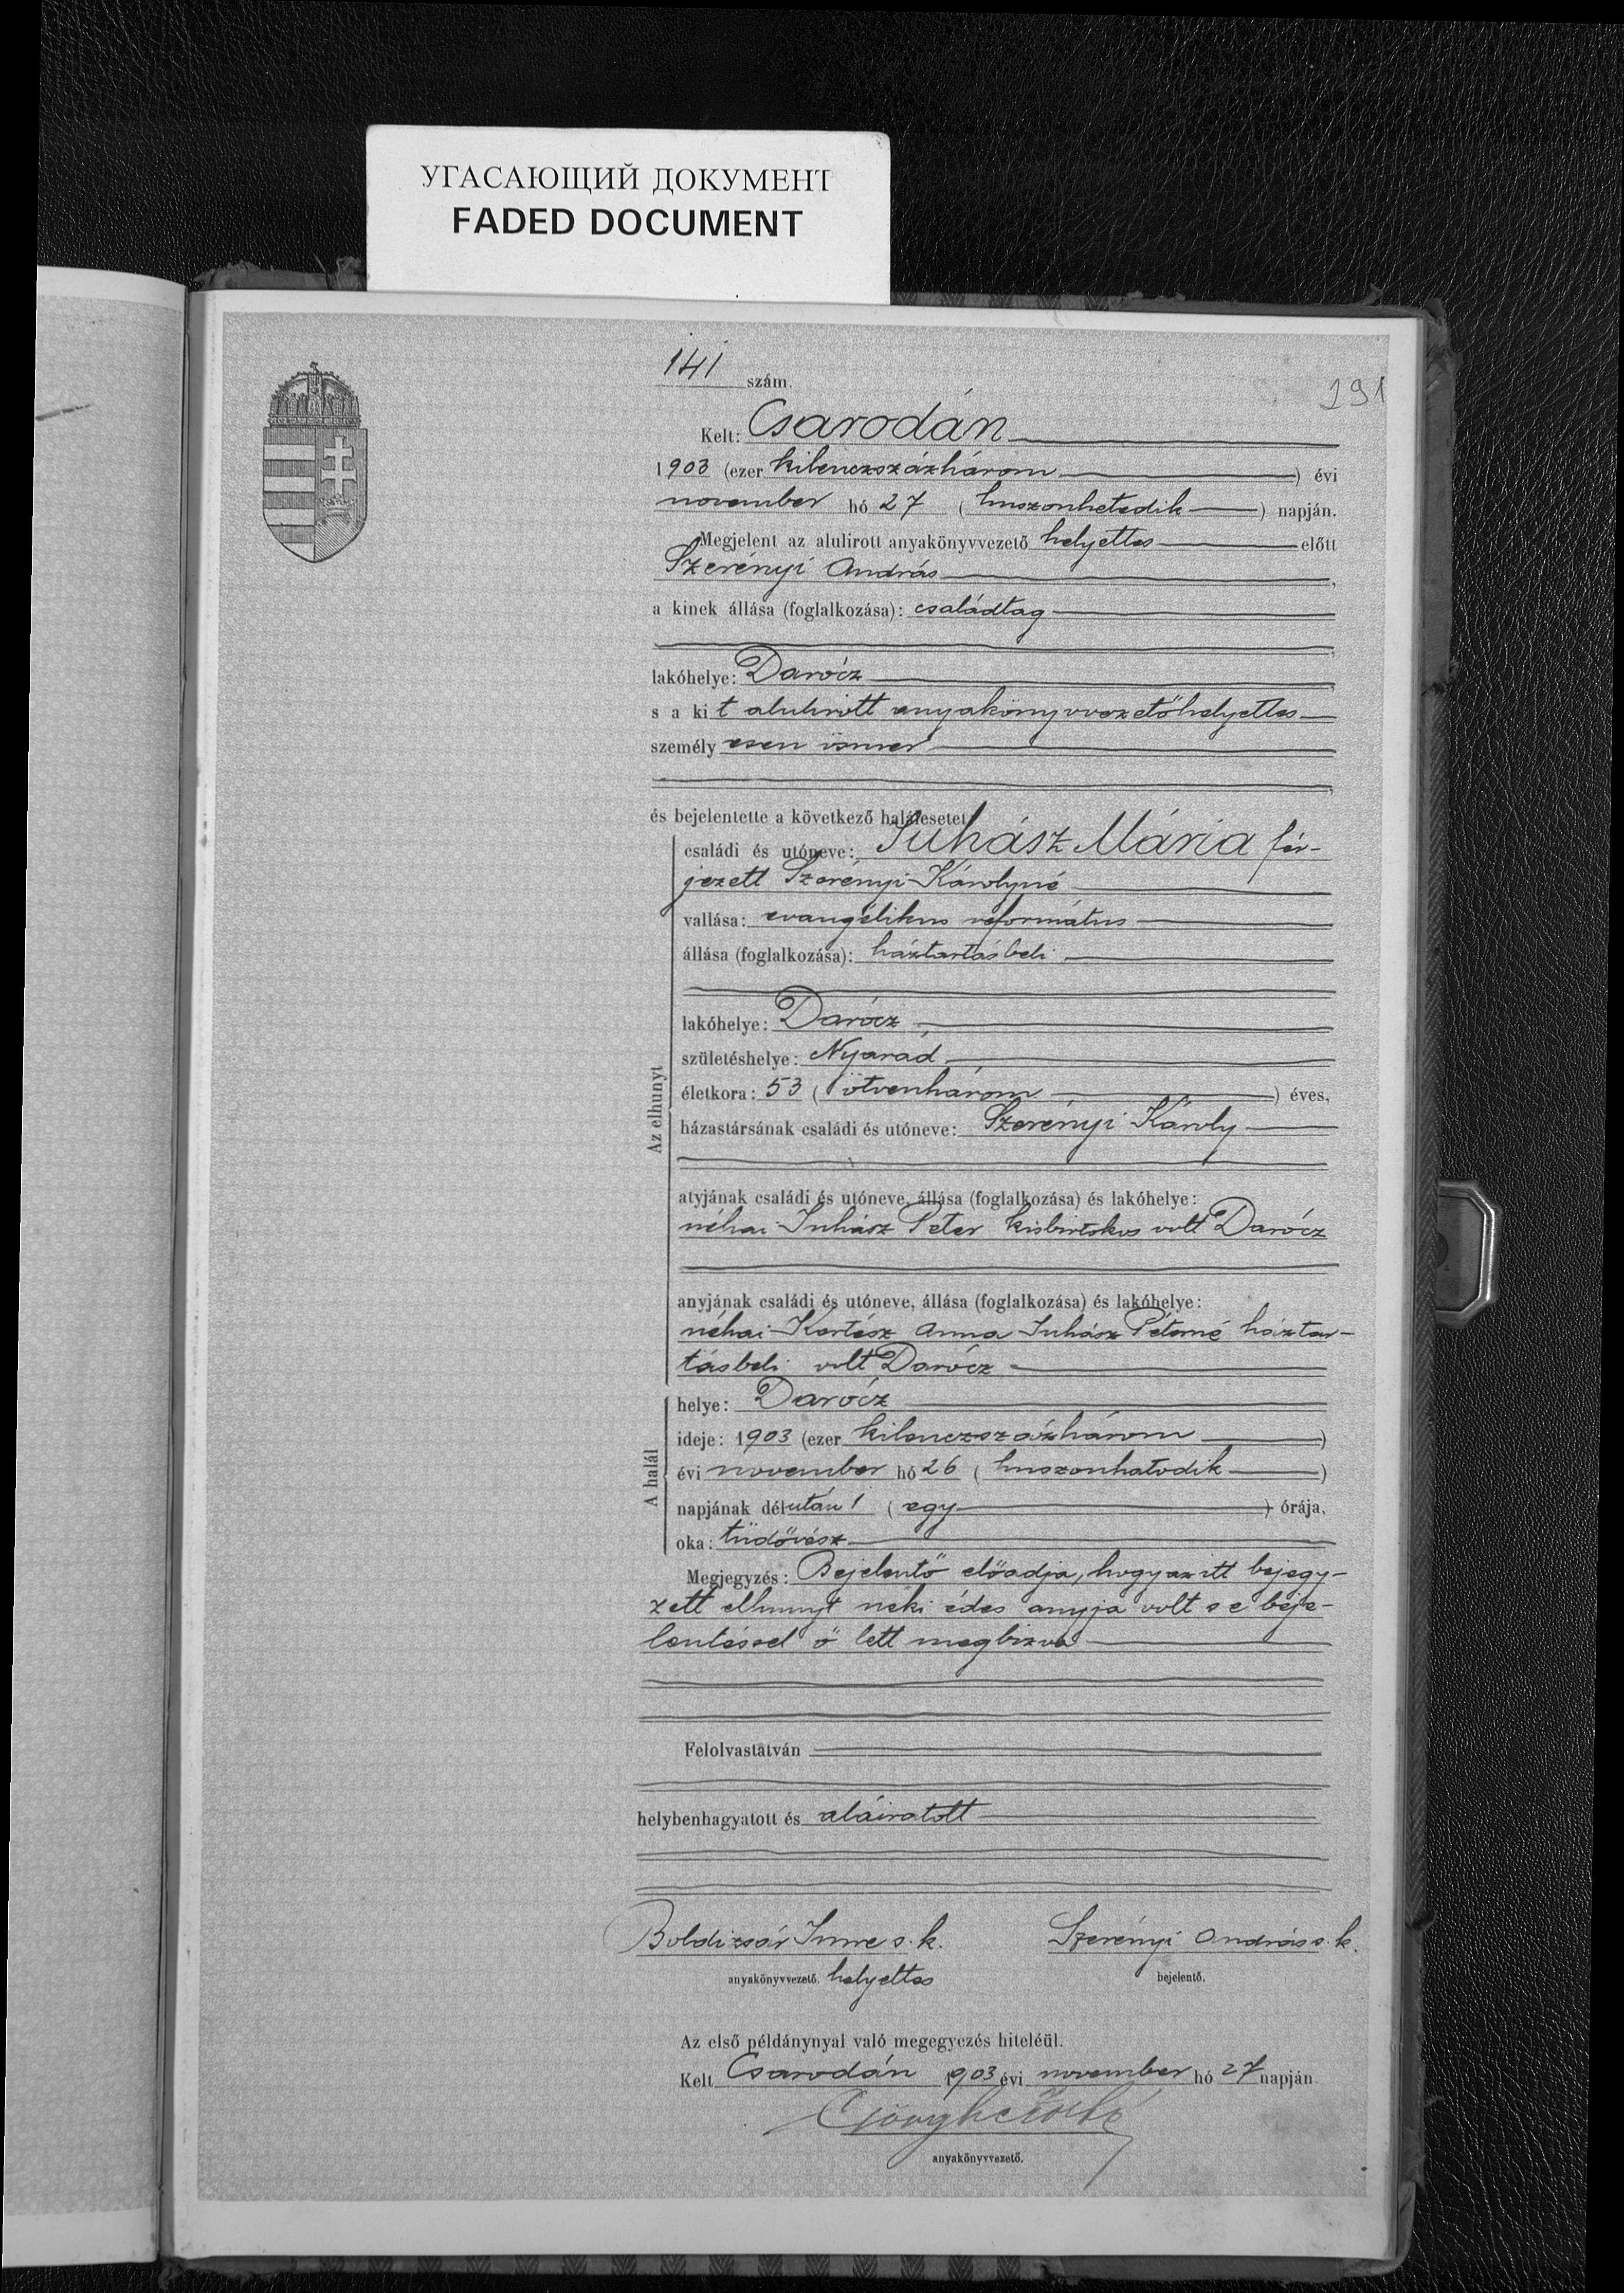 УГАСАЮЩИЙ ДОКУМЕНТ
FADED DOCUMENT
141 szám.
191
Kelt: Csarodán
1903 (ezer kilenczszázhárom) évi
november hó 27 (huszonhetedik) napján.
Megjelent az alulirott anyakönyvvezető helyettes előtt
Szerényi András,
a kinek állása (foglalkozása): családtag
lakóhelye: Darócz,
s a kit alulirott anyakönyvvezetőhelyettes
személyesen ismer
és bejelentette a következő halálesetet:
Az elhunyt
családi és utóneve: Juhász Mária fér-
jezett Szerényi Károlyné
vallása: evangélikus református
állása (foglalkozása): háztartásbeli
lakóhelye: Darócz,
születéshelye: Nyarad
életkora: 53 (ötvenhárom) éves,
házastársának családi és utóneve: Szerényi Károly
atyjának családi és utóneve, állása (foglalkozása) és lakóhelye:
néhai Juhász Péter kisbirtokos volt Darócz
anyjának családi és utóneve, állása (foglalkozása) és lakóhelye:
néhai Kertész Anna Juhász Péterné háztar-
tásbeli volt Darócz
A halál
helye: Darócz
ideje: 1903 (ezer kilenczszázhárom)
évi november hó 26 (huszonhatodik)
napjának délután 1 (egy) órája,
oka: tüdővész
Megjegyzés: Bejelentő előadja, hogy az itt bejegy-
zett elhunyt neki édes anyja volt s e beje-
lentéssel ő lett megbizva
Felolvastatván
helybenhagyatott és aláiratott
Boldizsár Imre s. k. Szerényi András s. k.
anyakönyvvezető. helyettes bejelentő.
Az első példánynyal való megegyezés hiteléül.
Kelt Csarodán 1903 évi november hó 27 napján
anyakönyvvezető.